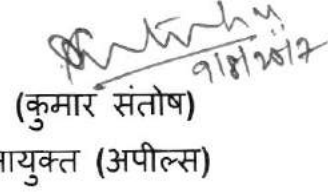 9/8/2017
(कुमार संतोष)
आयुक्त (अपील्स)